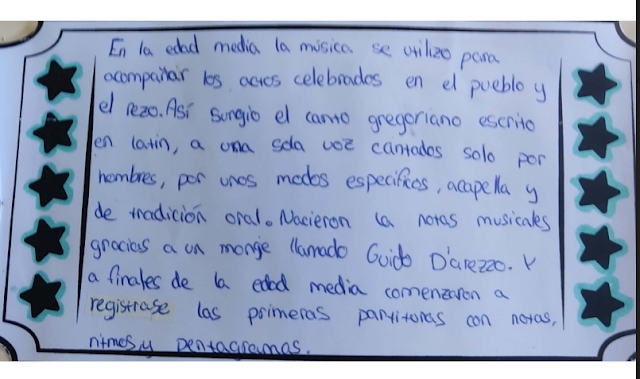 En la edad media la música se utilizo para
acompañar los actos celebrados en el pueblo y
el rezo. Así surgio el canto gregoriano escrito
en latín, a una sola voz cantados solo por
hombres, por unos modos especificos, acapella y
de tradición oral. Nacieron la notas musicales
gracias a un monje llamado Guido D'arezzo. Y
a finales de la edad media comenzaron a
registrase las primeras partituras con notas,
ritmos y pentagramas.